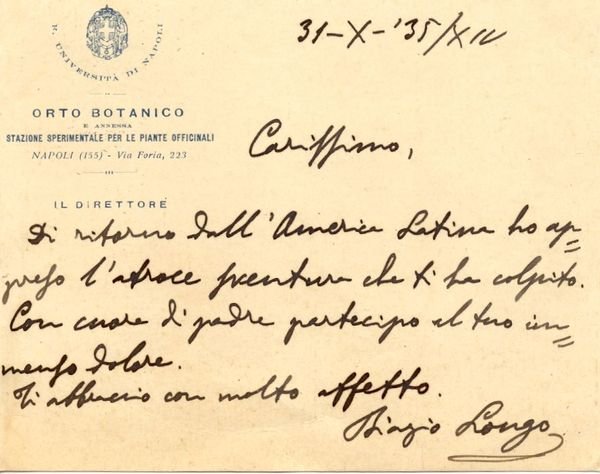 R. UNIVERSITÀ DI NAPOLI
31-X-'35/XIV
ORTO BOTANICO
E ANNESSA
STAZIONE SPERIMENTALE PER LE PIANTE OFFICINALI
NAPOLI (155) - Via Foria, 223
Carissimo,
IL DIRETTORE
Di ritorno dall'America Latina ho ap=
preso l'atroce sventura che ti ha colpito.
Con cuore di padre partecipo al tuo im=
menso dolore.
Ti abbraccio con molto affetto.
Biagio Longo